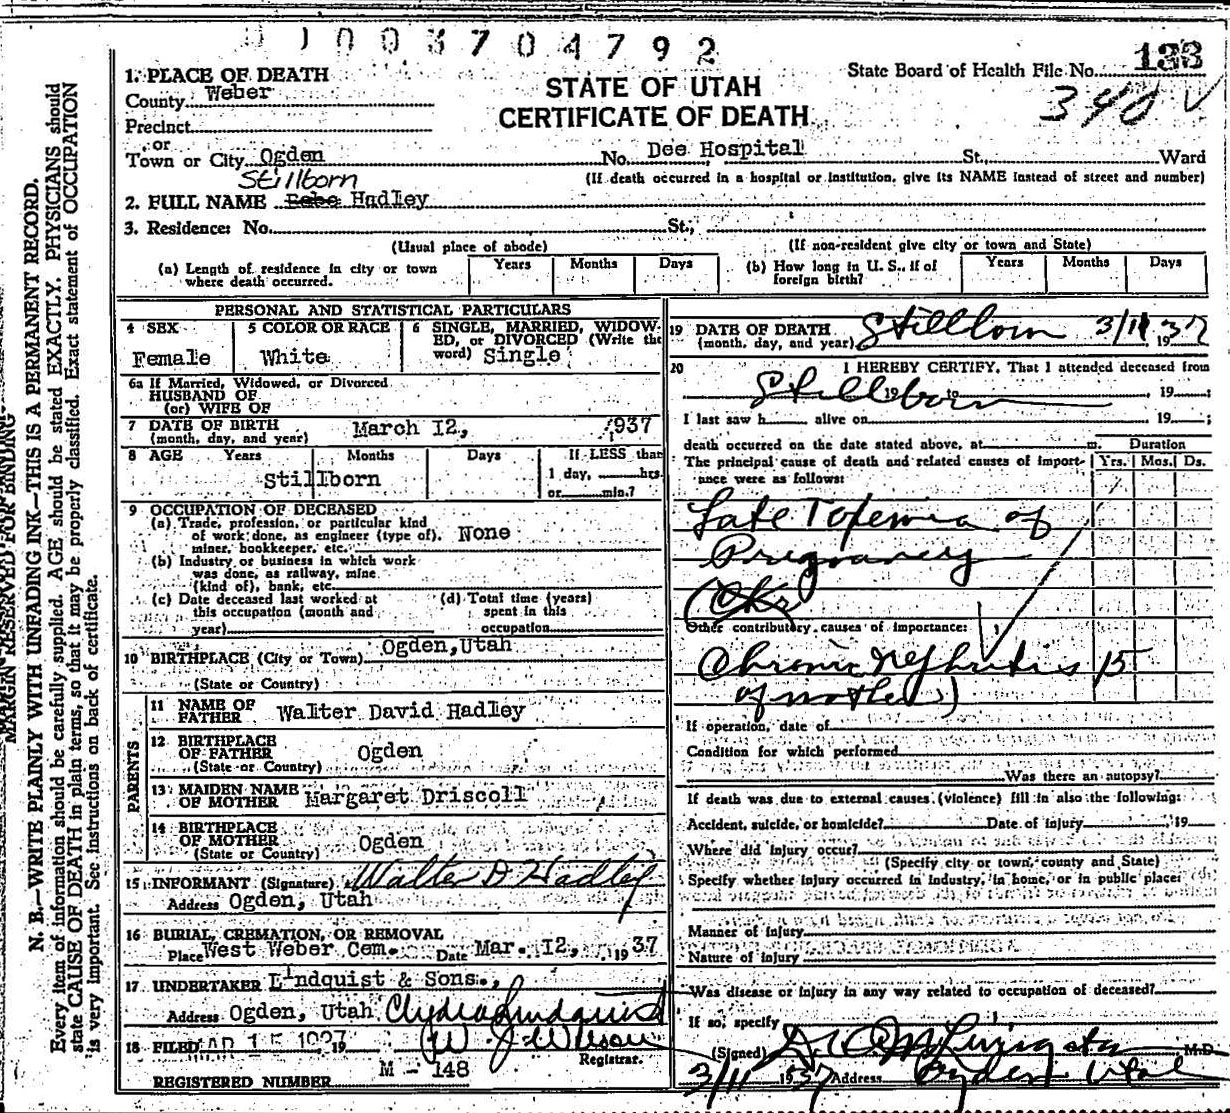 D 1 0 0 3 7 0 4 7 9 2
State Board of Health File No. 133
340 V
STATE OF UTAH
CERTIFICATE OF DEATH
1. PLACE OF DEATH
County Weber
Precinct
or
Town or City Ogden No. Dee Hospital St., Ward
(If death occurred in a hospital or institution, give its NAME instead of street and number)
Stillborn
2. FULL NAME Bebe Hadley
3. Residence: No. St.,
(Usual place of abode) (If non-resident give city or town and State)
(a) Length of residence in city or town where death occurred. Years Months Days
(b) How long in U. S., if of foreign birth? Years Months Days
PERSONAL AND STATISTICAL PARTICULARS
4 SEX
Female
5 COLOR OR RACE
White
6 SINGLE, MARRIED, WIDOW-
ED, or DIVORCED (Write the
word) Single
6a If Married, Widowed, or Divorced
HUSBAND OF
(or) WIFE OF
7 DATE OF BIRTH
(month, day, and year) March 12, 1937
8 AGE Years Months Days If LESS than
1 day, hrs.
or min.?
Stillborn
9 OCCUPATION OF DECEASED
(a) Trade, profession, or particular kind
of work done, as engineer (type of), None
miner, bookkeeper, etc.
(b) Industry or business in which work
was done, as railway, mine
(kind of), bank, etc.
(c) Date deceased last worked at
this occupation (month and
year)
(d) Total time (years)
spent in this
occupation
10 BIRTHPLACE (City or Town) Ogden, Utah
(State or Country)
PARENTS
11 NAME OF
FATHER Walter David Hadley
12 BIRTHPLACE
OF FATHER Ogden
(State or Country)
13 MAIDEN NAME
OF MOTHER Margaret Driscoll
14 BIRTHPLACE
OF MOTHER Ogden
(State or Country)
15 INFORMANT (Signature) Walter D Hadley
Address Ogden, Utah
16 BURIAL, CREMATION, OR REMOVAL
Place West Weber Cem. Date Mar. 12, 1937
17 UNDERTAKER Lindquist & Sons.,
Address Ogden, Utah Clyde Lindquist
18 FILED MAR 15 1937 19 W J Wilson
Registrar.
REGISTERED NUMBER M - 148
19 DATE OF DEATH
(month, day, and year) Stillborn 3/11 1937
20 I HEREBY CERTIFY, That I attended deceased from
Stillborn 19 ;
I last saw h alive on 19 ;
death occurred on the date stated above, at m.
The principal cause of death and related causes of import-
ance were as follows:
Duration
Yrs. Mos. Ds.
Late Toxemia of
Pregnancy
Other contributory causes of importance:
Chronic Nephritis 15
of mother)
If operation, date of
Condition for which performed
Was there an autopsy?
If death was due to external causes (violence) fill in also the following:
Accident, suicide, or homicide? Date of injury 19
Where did injury occur?
(Specify city or town, county and State)
Specify whether injury occurred in industry, in home, or in public place:
Manner of injury
Nature of injury
Was disease or injury in any way related to occupation of deceased?
If so, specify
(Signed) M.D.
3/11 1937 Address Ogden Utah
MARGIN RESERVED FOR BINDING
N. B.—WRITE PLAINLY WITH UNFADING INK—THIS IS A PERMANENT RECORD.
Every item of information should be carefully supplied. AGE should be stated EXACTLY. PHYSICIANS should
state CAUSE OF DEATH in plain terms, so that it may be properly classified. Exact statement of OCCUPATION
is very important. See instructions on back of certificate.